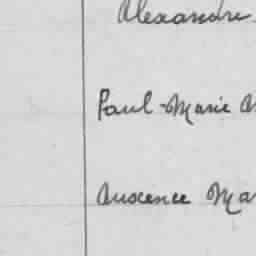 Alexandre
Paul-Marie
Auxence Ma